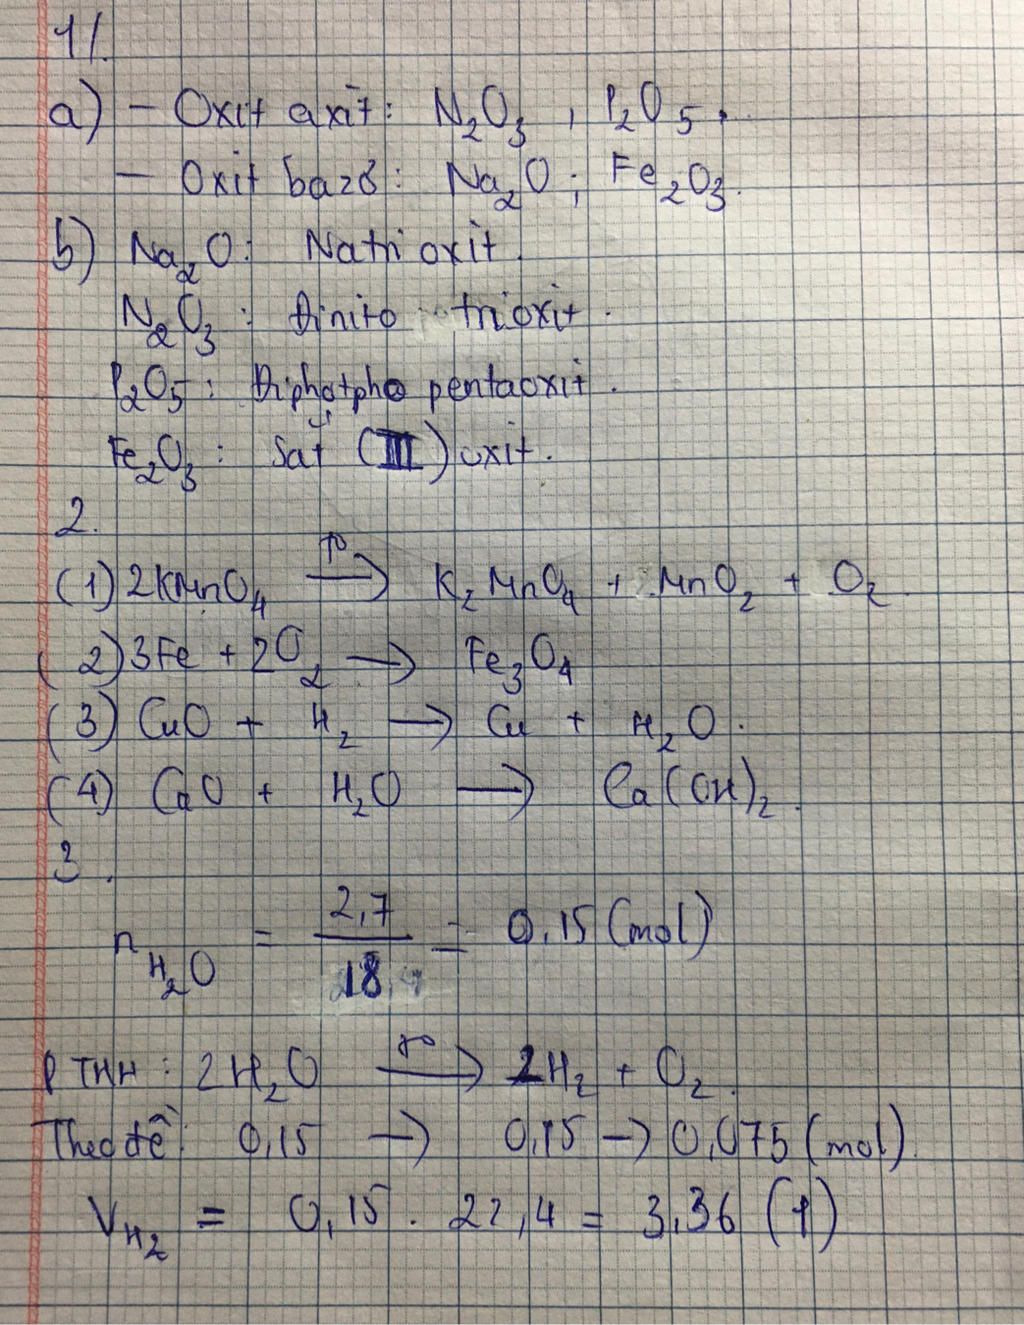 1/.
a) – Oxit axit: N₂O₃, P₂O₅.
– Oxit bazơ: Na₂O; Fe₂O₃.
b) Na₂O: Natri oxit.
N₂O₃: Đinitơ trioxit.
P₂O₅: Điphotpho pentaoxit.
Fe₂O₃: Sắt (III) oxit.
2.
(1) 2KMnO₄ –t°→ K₂MnO₄ + MnO₂ + O₂
(2) 3Fe + 2O₂ → Fe₃O₄
(3) CuO + H₂ → Cu + H₂O.
(4) CaO + H₂O → Ca(OH)₂.
3.
n H₂O = 2,7/18 = 0,15 (mol)
PTHH: 2H₂O –t°→ 2H₂ + O₂.
Theo đề: 0,15 → 0,15 → 0,075 (mol).
V H₂ = 0,15 . 22,4 = 3,36 (l)